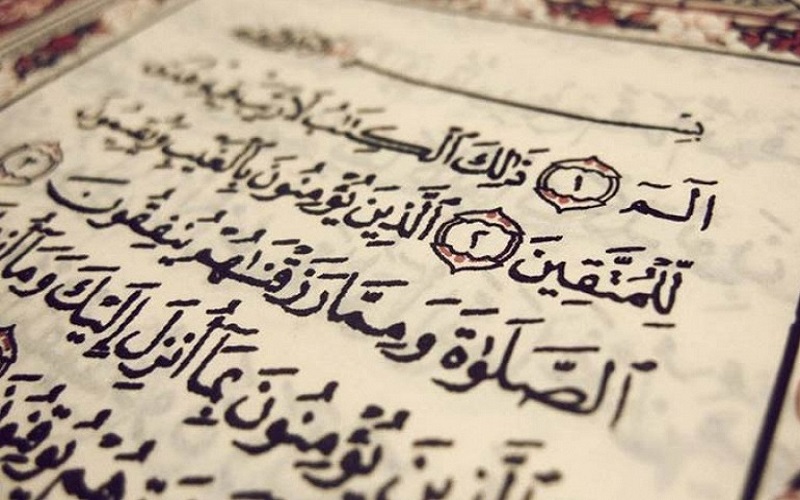 بِسْمِ
الٓمٓ ١ ذَٰلِكَ ٱلْكِتَٰبُ لَا رَيْبَ فِيهِ هُدًى
لِّلْمُتَّقِينَ ٢ ٱلَّذِينَ يُؤْمِنُونَ بِٱلْغَيْبِ وَيُقِيمُونَ
ٱلصَّلَوٰةَ وَمِمَّا رَزَقْنَٰهُمْ يُنفِقُونَ ٣
ٱلَّذِينَ يُؤْمِنُونَ بِمَآ أُنزِلَ إِلَيْكَ وَمَآ أُنزِ
هُمْ يُوقِنُونَ